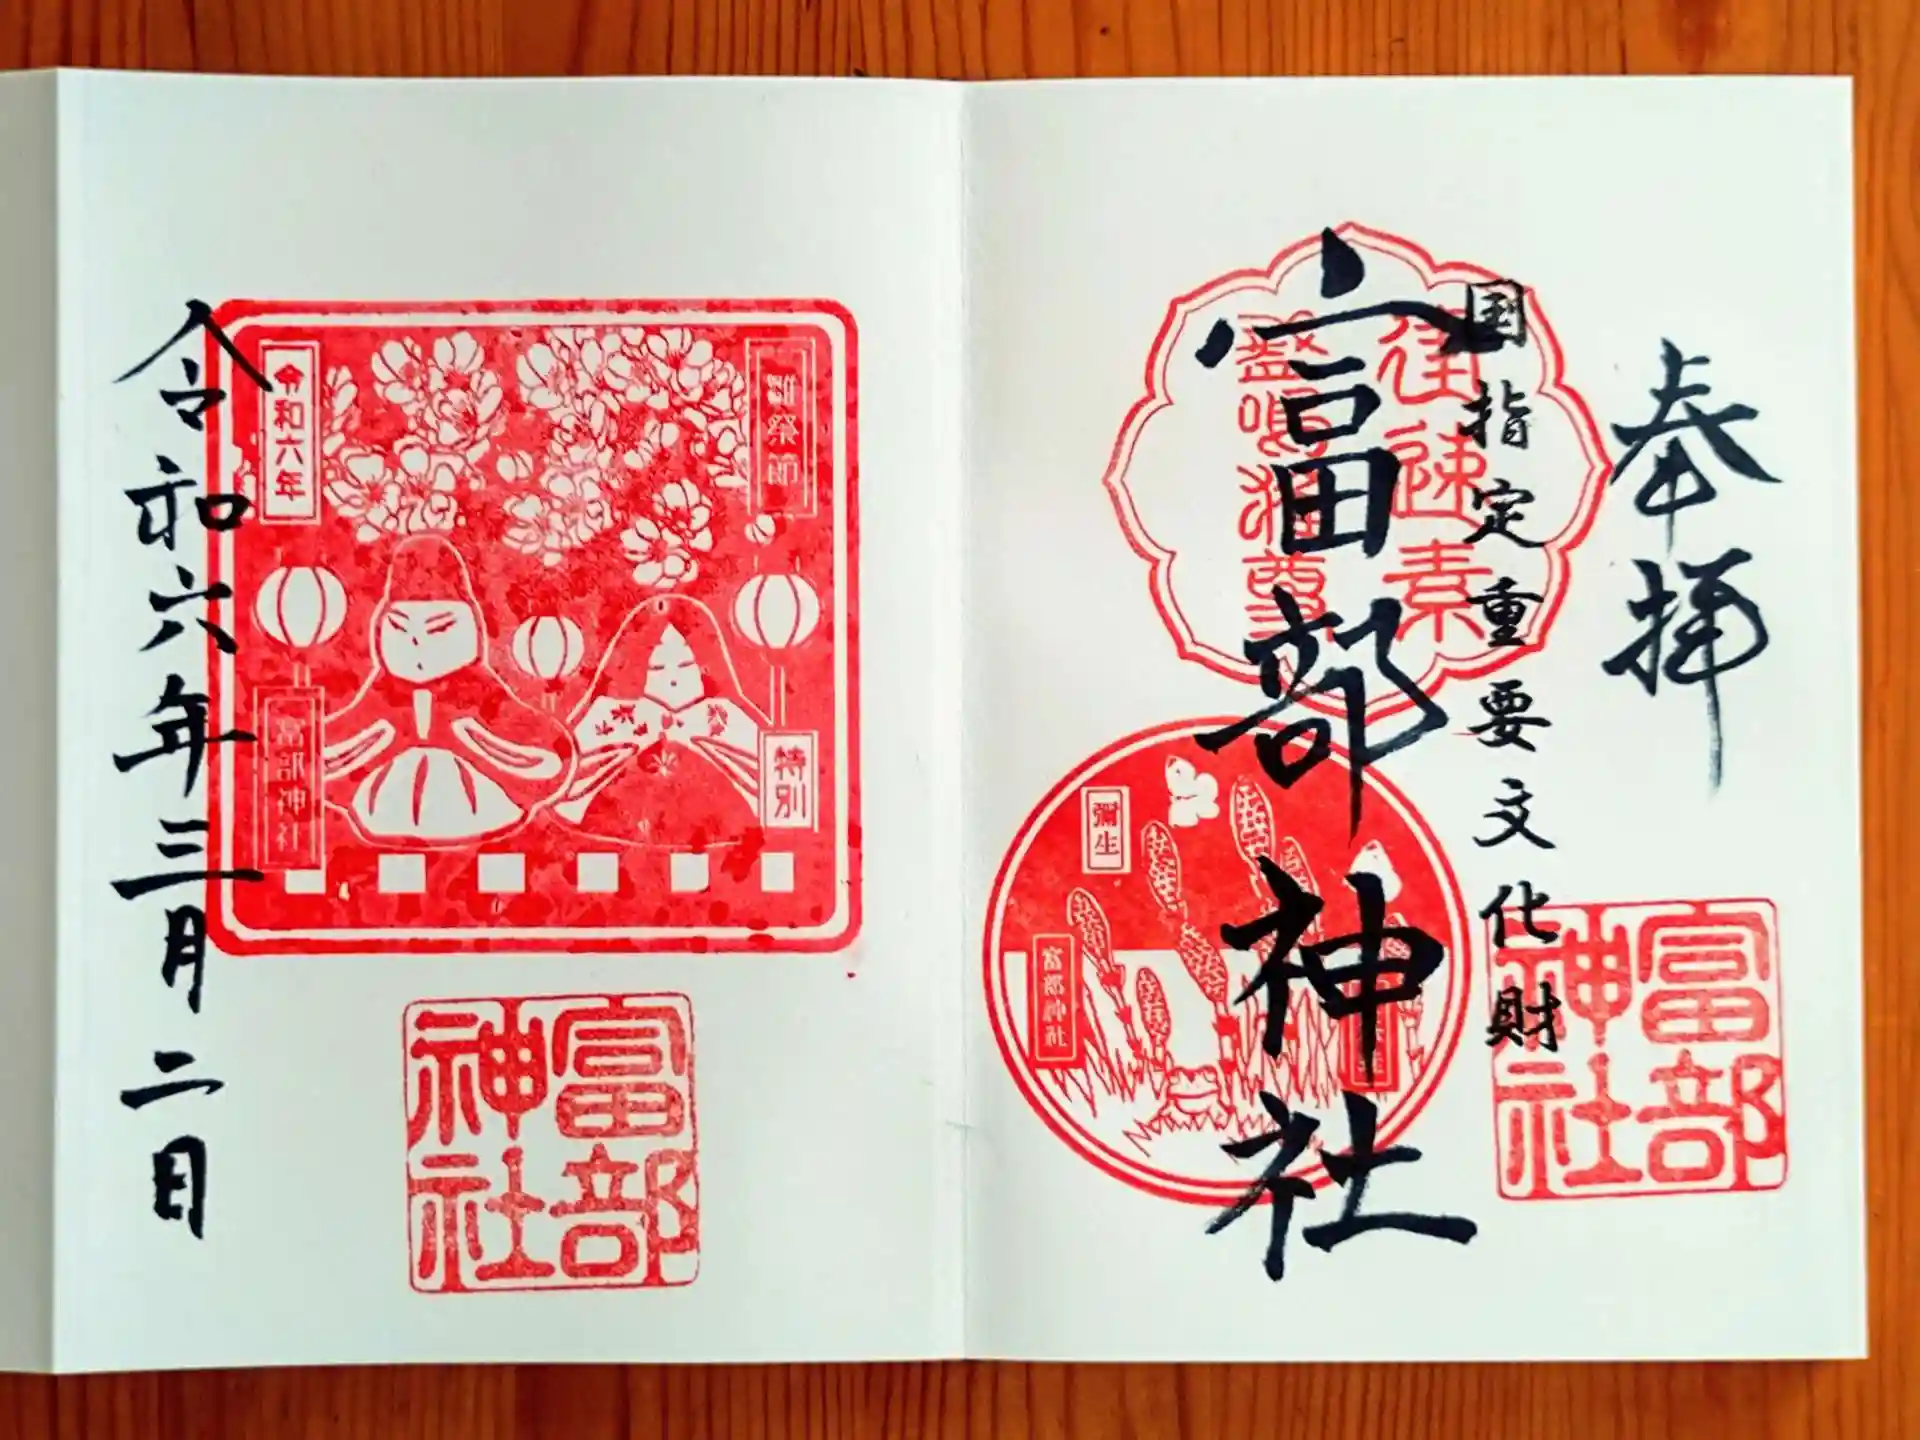 奉拝
国指定重要文化財
富部神社
進雄
素
尊
彌生
富部神社
富部神社
令和六年
特別
富部神社
富部神社
令和六年三月二日